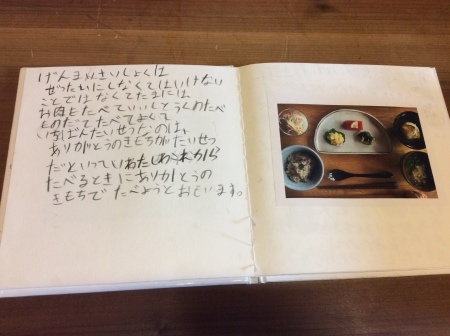 げんまいさいしょくは
ぜったいにしなくてはいけない
ことではなくてたまには、
お肉もたべていいしとうくのたべ
ものだてたべてよくて
いちばんたいせつなのは、
ありがとうのきもちがたいせつ
だといっていわたしわこれから
たべるときにありがとうの
きもちでたべようとおもいます。